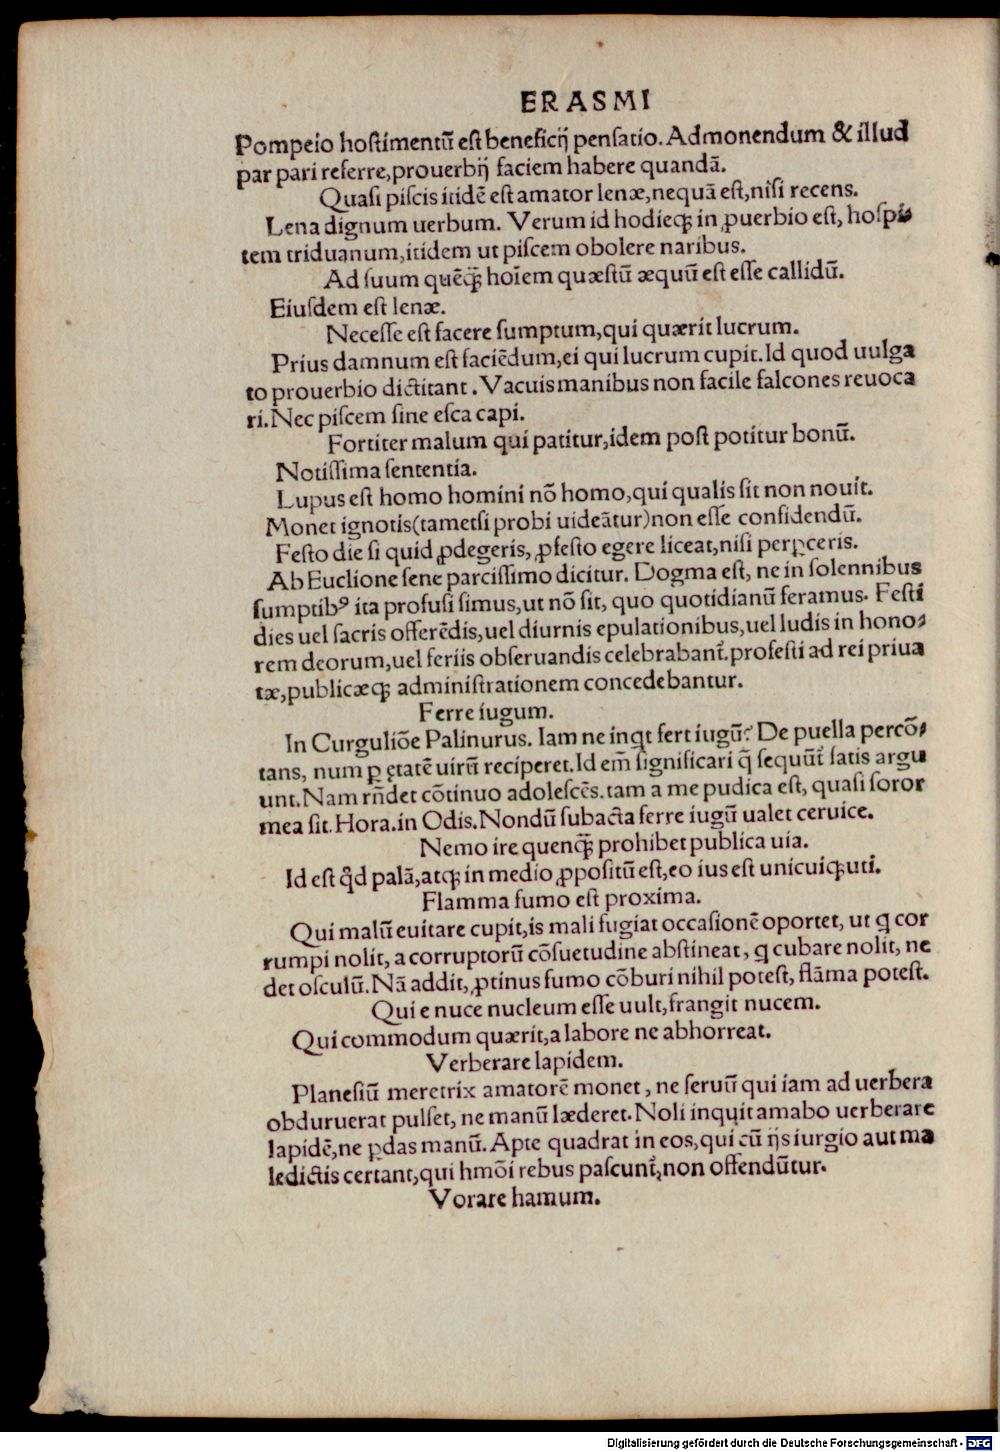 ERASMI
Pompeio hoſtimentū eſt beneficij penſatio. Admonendum & illud
par pari referre,prouerbij faciem habere quandā.
Quaſi piſcis itidē eſt amator lenæ,nequā eſt,niſi recens.
Lena dignum uerbum. Verum id hodieqꝫ in ꝓuerbio eſt, hoſpi⸗
tem triduanum,itidem ut piſcem obolere naribus.
Ad ſuum quēqꝫ hoīem quæſtū æquū eſt eſſe callidū.
Eiuſdem eſt lenæ.
Neceſſe eſt facere ſumptum,qui quærit lucrum.
Prius damnum eſt faciēdum,ei qui lucrum cupit.Id quod uulga
to prouerbio dictitant. Vacuis manibus non facile falcones reuoca
ri.Nec piſcem ſine eſca capi.
Fortiter malum qui patitur,idem poſt potitur bonū.
Notiſſima ſententia.
Lupus eſt homo homini nō homo,qui qualis ſit non nouit.
Monet ignotis(tametſi probi uideātur)non eſſe confidendū.
Feſto die ſi quid ꝓdegeris, ꝓfeſto egere liceat,niſi perꝑceris.
Ab Euclione ſene parciſſimo dicitur. Dogma eſt, ne in ſolennibus
ſumptibꝰ ita profuſi ſimus,ut nō ſit, quo quotidianū feramus. Feſti
dies uel ſacris offerēdis,uel diurnis epulationibus,uel ludis in hono⸗
rem deorum,uel feriis obſeruandis celebrabant̃.profeſti ad rei priua
tæ,publicæqꝫ adminiſtrationem concedebantur.
Ferre iugum.
In Curguliōe Palinurus. Iam ne inqt fert iugū? De puella percō⸗
tans, num ꝑ ętatē uirū reciperet.Id em̄ ſignificari q̄ ſequūt̃ ſatis argu
unt.Nam rñdet cōtinuo adoleſcēs.tam a me pudica eſt, quaſi ſoror
mea ſit.Hora.in Odis.Nondū ſubacta ferre iugū ualet ceruice.
Nemo ire quenqꝫ̄ prohibet publica uia.
Id eſt qd̄ palā,atqꝫ in medio ꝓpoſitū eſt,eo ius eſt unicuiqꝫ uti.
Flamma fumo eſt proxima.
Qui malū euitare cupit,is mali fugiat occaſionē oportet, ut q cor
rumpi nolit, a corruptorū cōſuetudine abſtineat, q cubare nolit, ne
det oſculū.Nā addit, ꝓtinus fumo cōburi nihil poteſt, flāma poteſt.
Qui e nuce nucleum eſſe uult,frangit nucem.
Qui commodum quærit,a labore ne abhorreat.
Verberare lapidem.
Planeſiū meretrix amatorē monet, ne ſeruū qui iam ad uerbera
obduruerat pulſet, ne manū læderet.Noli inquit amabo uerberare
lapidē,ne ꝑdas manū.Apte quadrat in eos,qui cū ijs iurgio aut ma
ledictis certant,qui hmōi rebus paſcunt̃,non offendūtur.
Vorare hamum.
Digitalisierung gefördert durch die Deutsche Forschungsgemeinschaft - DFG